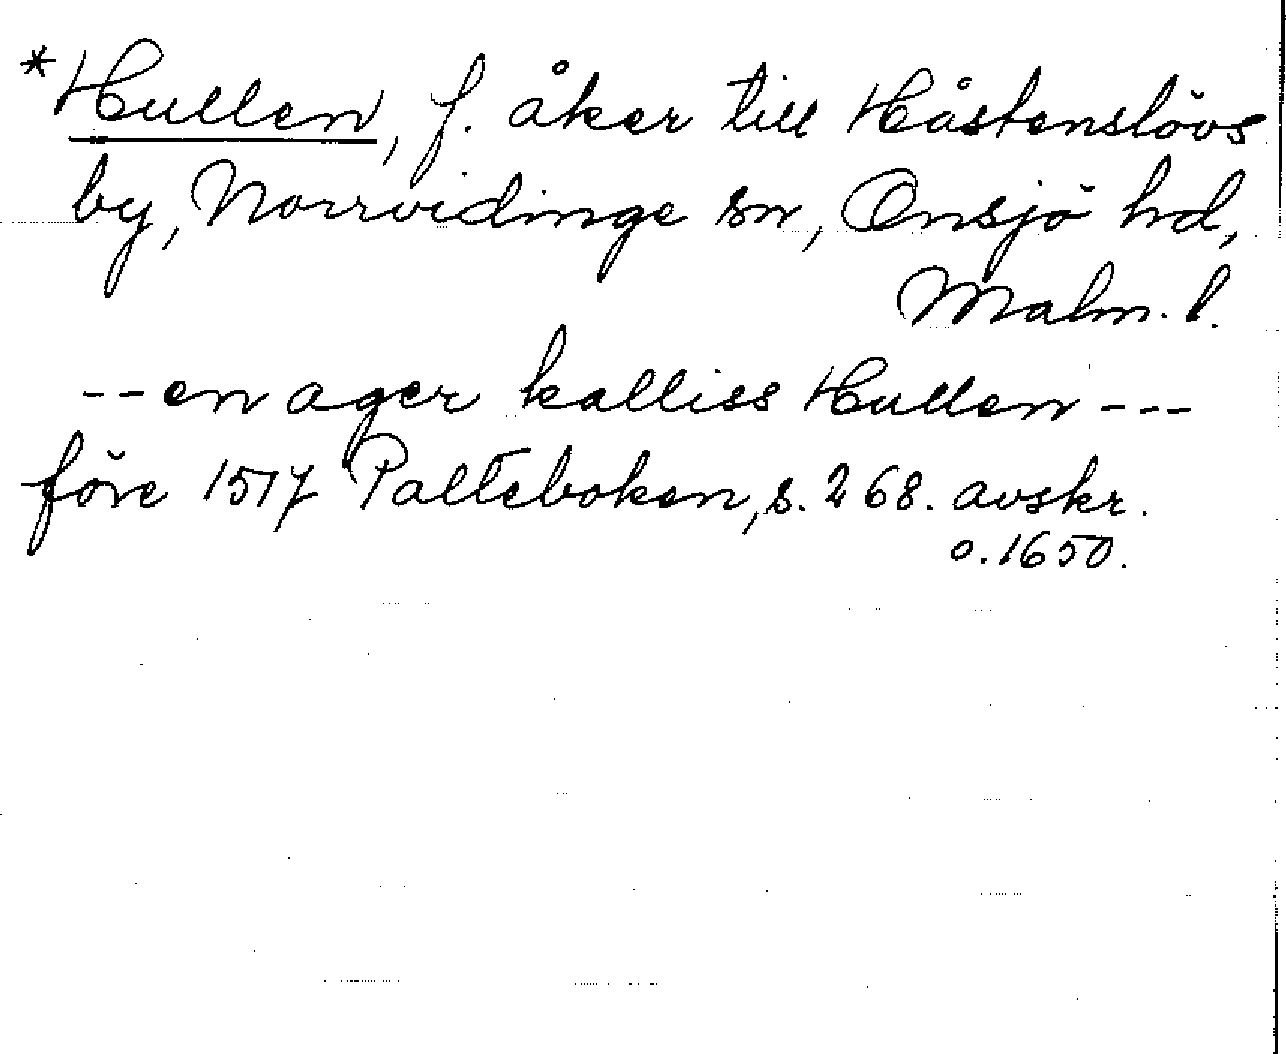 *Hullen, f. åker till Håstenslövs
by, Norrvidinge sn, Onsjö hd,
Malm. l.
-- en ager kalliss Hullen ---
före 1517 Palteboken, s. 268. avskr.
o. 1650.